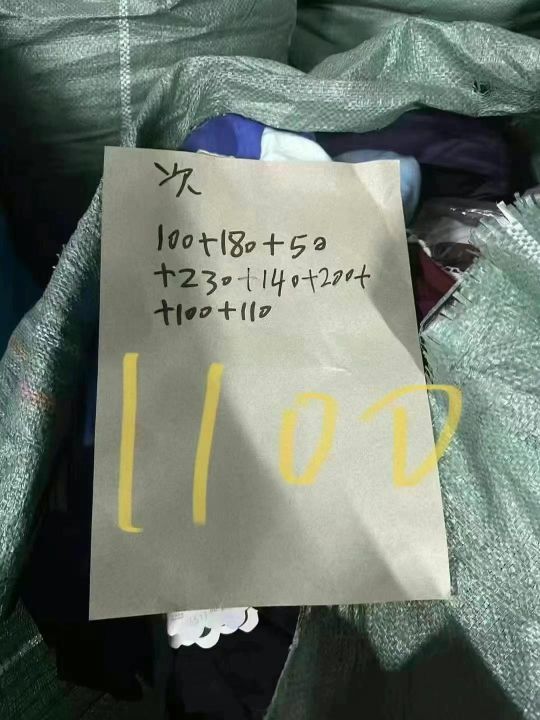 次
100+180+50
+230+140+200+
+100+110
1100